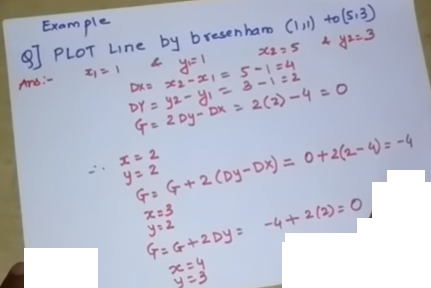 Example
Q] PLOT Line by bresenham (1,1) to (5,3)
Ans:- x1 = 1 & y1=1 x2=5 & y2=3
DX= x2-x1 = 5-1=4
DY= y2-y1 = 3-1=2
G= 2Dy-Dx = 2(2)-4 = 0
∴ x=2
y=2
G= G+2(Dy-Dx) = 0+2(2-4)=-4
x=3
y=2
G=G+2Dy= -4+2(2)=0
x=4
y=3